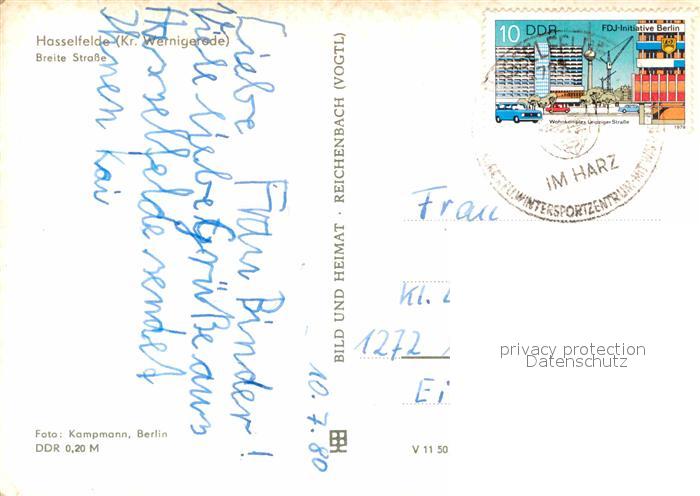 Hasselfelde (Kr. Wernigerode)
Breite Straße
Liebe Frau Binder!
Viele liebe Grüße aus
Hasselfelde sendet
Ihnen Kai
10.7.80
Foto: Kampmann, Berlin
DDR 0,20 M
BILD UND HEIMAT · REICHENBACH (VOGTL)
V 11 50
10 DDR
FDJ-Initiative Berlin
Wohnkomplex Leipziger Straße
1979
IM HARZ
WINTERSPORTZENTRUM
Frau
Kl.
1272
Ei
privacy protection
Datenschutz